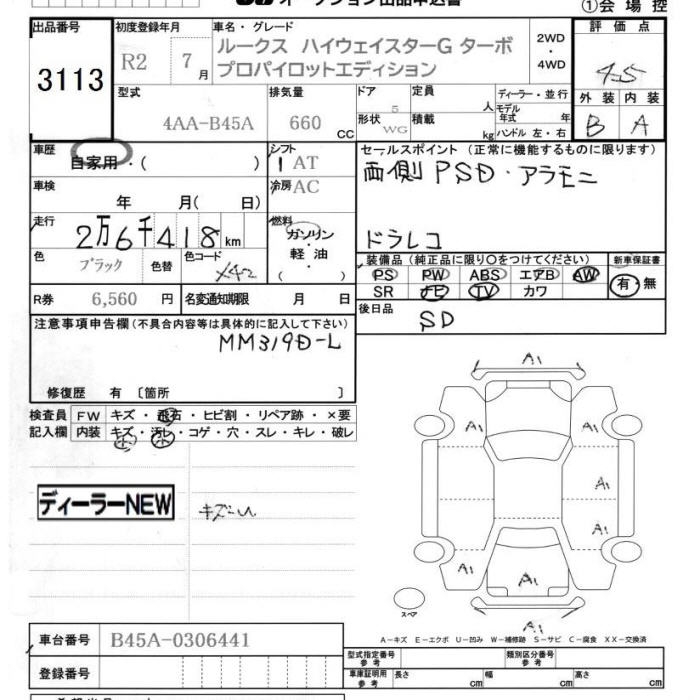 オークション出品申込書
①会場控
出品番号
3113
初度登録年月
R2 7月
車名・グレード
ルークス ハイウェイスターG ターボ
プロパイロットエディション
2WD
・
4WD
評価点
4.5
外装 内装
B A
型式
4AA-B45A
排気量
660 CC
ドア
5
形状
WG
定員
人
積載
kg
ディーラー・並行
モデル年式 年
ハンドル 左・右
車歴
自家用・( )
シフト
AT
車検
年 月( 日)
冷房
AC
走行
2万6千418km
燃料
ガソリン
・
軽油
・
( )
色
ブラック
色替
色コード
R券 6,560 円
名変通知期限 月 日
セールスポイント(正常に機能するものに限ります)
両側PSD・アラモニ
ドラレコ
装備品(純正品に限り○をつけてください)
PS PW ABS エアB AW
SR ナビ TV カワ
新車保証書
有・無
後日品
SD
注意事項申告欄(不具合内容等は具体的に記入して下さい)
MM319D-L
修復歴 有〔箇所 〕
検査員記入欄
FW キズ・飛石・ヒビ割・リペア跡・×要
内装 キズ・汚レ・コゲ・穴・スレ・キレ・破レ
小 小
ディーラーNEW
キズ
A1
A1
A1
A1
A1
A1
A1
A1
A1
スペア
A−キズ E−エクボ U−凹み W−補修跡 S−サビ C−腐食 XX−交換済
車台番号 B45A-0306441
登録番号
型式指定番号
参考
類別区分番号
参考
車庫証明用
参考
長さ cm
幅 cm
高さ cm